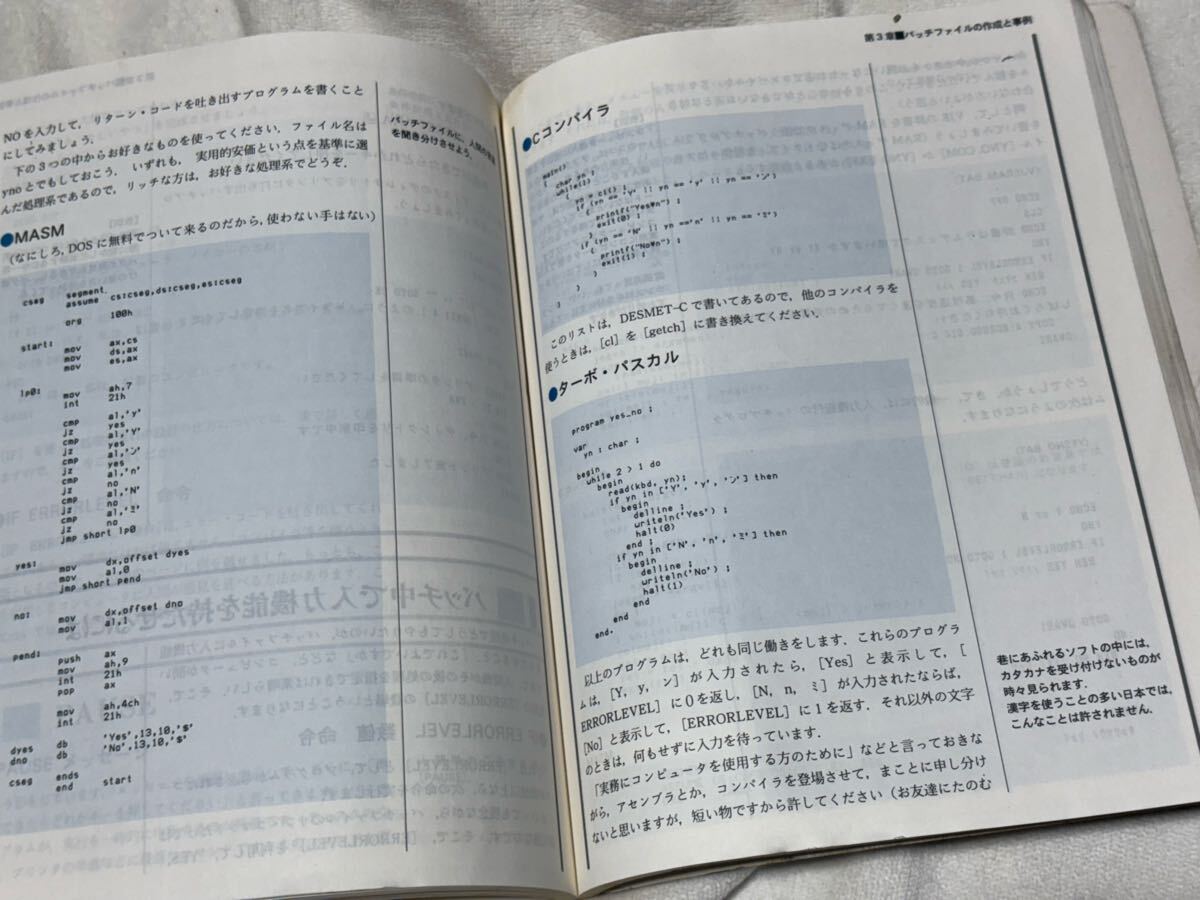 NOを入力して，リターン・コードを吐き出すプログラムを書くこと
にしてみましょう．
下の３つの中からお好きなものを使ってください．ファイル名は
ynoとでもしておこう．いずれも，実用的安価という点を基準に選
んだ処理系であるので，リッチな方は，お好きな処理系でどうぞ．
●MASM
(なにしろ，DOSに無料でついて来るのだから，使わない手はない)
cseg segment
assume cs:cseg,ds:cseg,es:cseg
org 100h
start:
mov ax,cs
mov ds,ax
mov es,ax
lp0:
mov ah,7
int 21h
cmp al,'y'
jz yes
cmp al,'Y'
jz yes
cmp al,'ン'
jz yes
cmp al,'n'
jz no
cmp al,'N'
jz no
cmp al,'ミ'
jz no
jmp short lp0
yes:
mov dx,offset dyes
mov al,0
jmp short pend
no:
mov dx,offset dno
mov al,1
pend:
push ax
mov ah,9
int 21h
pop ax
mov ah,4ch
int 21h
dyes db 'Yes',13,10,'$'
dno db 'No',13,10,'$'
cseg ends
end start
バッチファイルに，人間の
を聞き分けさせよう．
第３章■バッチファイルの作成と事例
●Cコンパイラ
main()
{ char yn ;
while(1)
{ yn = ci() ;
if (yn == 'Y' || yn == 'y' || yn == 'ン')
{ printf("Yes¥n") ;
exit(0) ;
}
if (yn == 'N' || yn =='n' || yn == 'ミ')
{ printf("No¥n") ;
exit(1) ;
}
}
}
このリストは，DESMET-Cで書いてあるので，他のコンパイラを
使うときは，［cl］を［getch］に書き換えてください．
●ターボ・パスカル
program yes_no ;
var
yn : char ;
begin
while 2 > 1 do
begin
read(kbd, yn);
if yn in ['Y', 'y', 'ン'] then
begin
delline ;
writeln('Yes') ;
halt(0)
end ;
if yn in ['N', 'n', 'ミ'] then
begin
delline ;
writeln('No') ;
halt(1)
end
end
end.
以上のプログラムは，どれも同じ働きをします．これらのプログラ
ムは，［Y，y，ン］が入力されたら，［Yes］と表示して，［
ERRORLEVEL］に０を返し，［N，n，ミ］が入力されたならば，
［No］と表示して，［ERRORLEVEL］に１を返す．それ以外の文字
のときは，何もせずに入力を待っています．
「実務にコンピュータを使用する方のために」などと言っておきな
がら，アセンブラとか，コンパイラを登場させて，まことに申し分け
ないと思いますが，短い物ですから許してください（お友達にたのむ
巷にあふれるソフトの中には，
カタカナを受け付けないものが
時々見られます．
漢字を使うことの多い日本では，
こんなことは許されません．